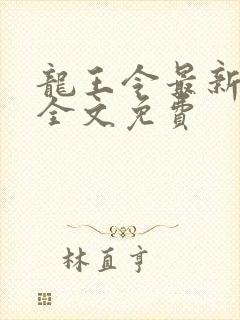 龍王令最新
全文免費
林直亨